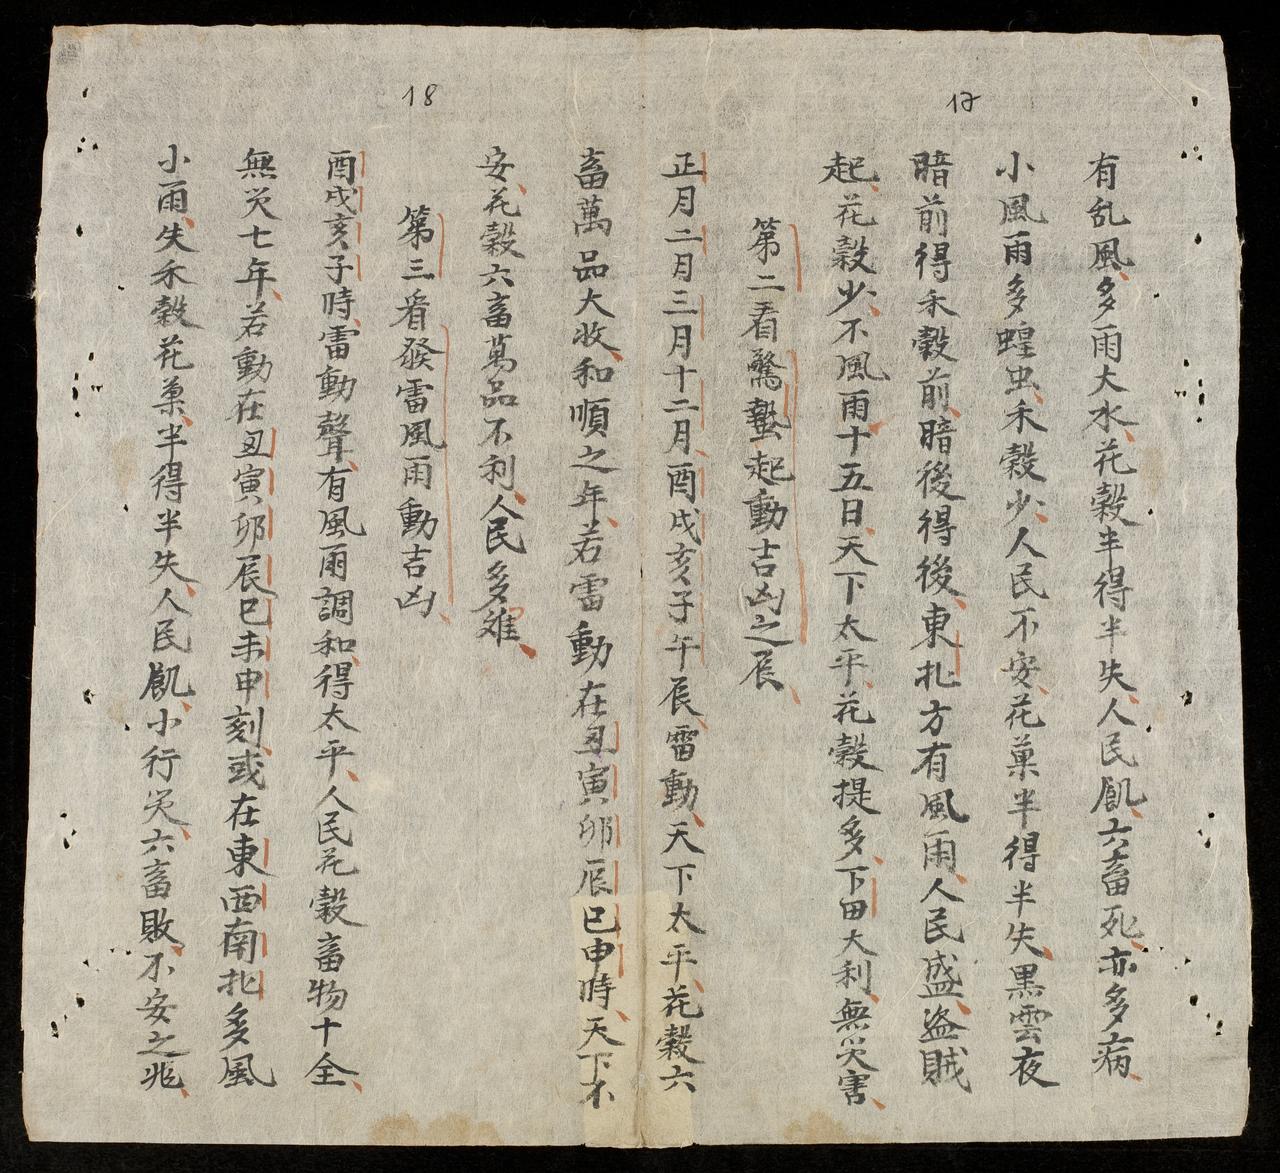 17
有乱風、多雨大水、花穀半得半失、人民飢、六畜死、亦多病、
小風雨多蝗虫、禾穀少、人民不安、花菓半得半失、黒雲夜
暗前得禾穀前、暗後得後、東北方有風雨、人民盛盗賊
起、花穀少、不風雨十五日、天下太平、花穀提多、下田大利、無災害、
第二看驚蟄起動吉凶之辰、
正月二月三月十二月、酉戌亥子午辰、雷動、天下太平、花穀六
畜萬品大收、和順之年、若雷動在丑寅卯辰巳申時、天下不
安、花穀六畜萬品不利、人民多难、
18
第三看發雷風雨動吉凶、
酉戌亥子時、雷動聲、有風雨調和、得太平、人民花穀畜物十全、
無災七年、若動在丑寅卯辰巳未申刻、或在東西南北多風
小雨、失禾穀花菓、半得半失、人民飢、小行災、六畜敗、不安之兆、